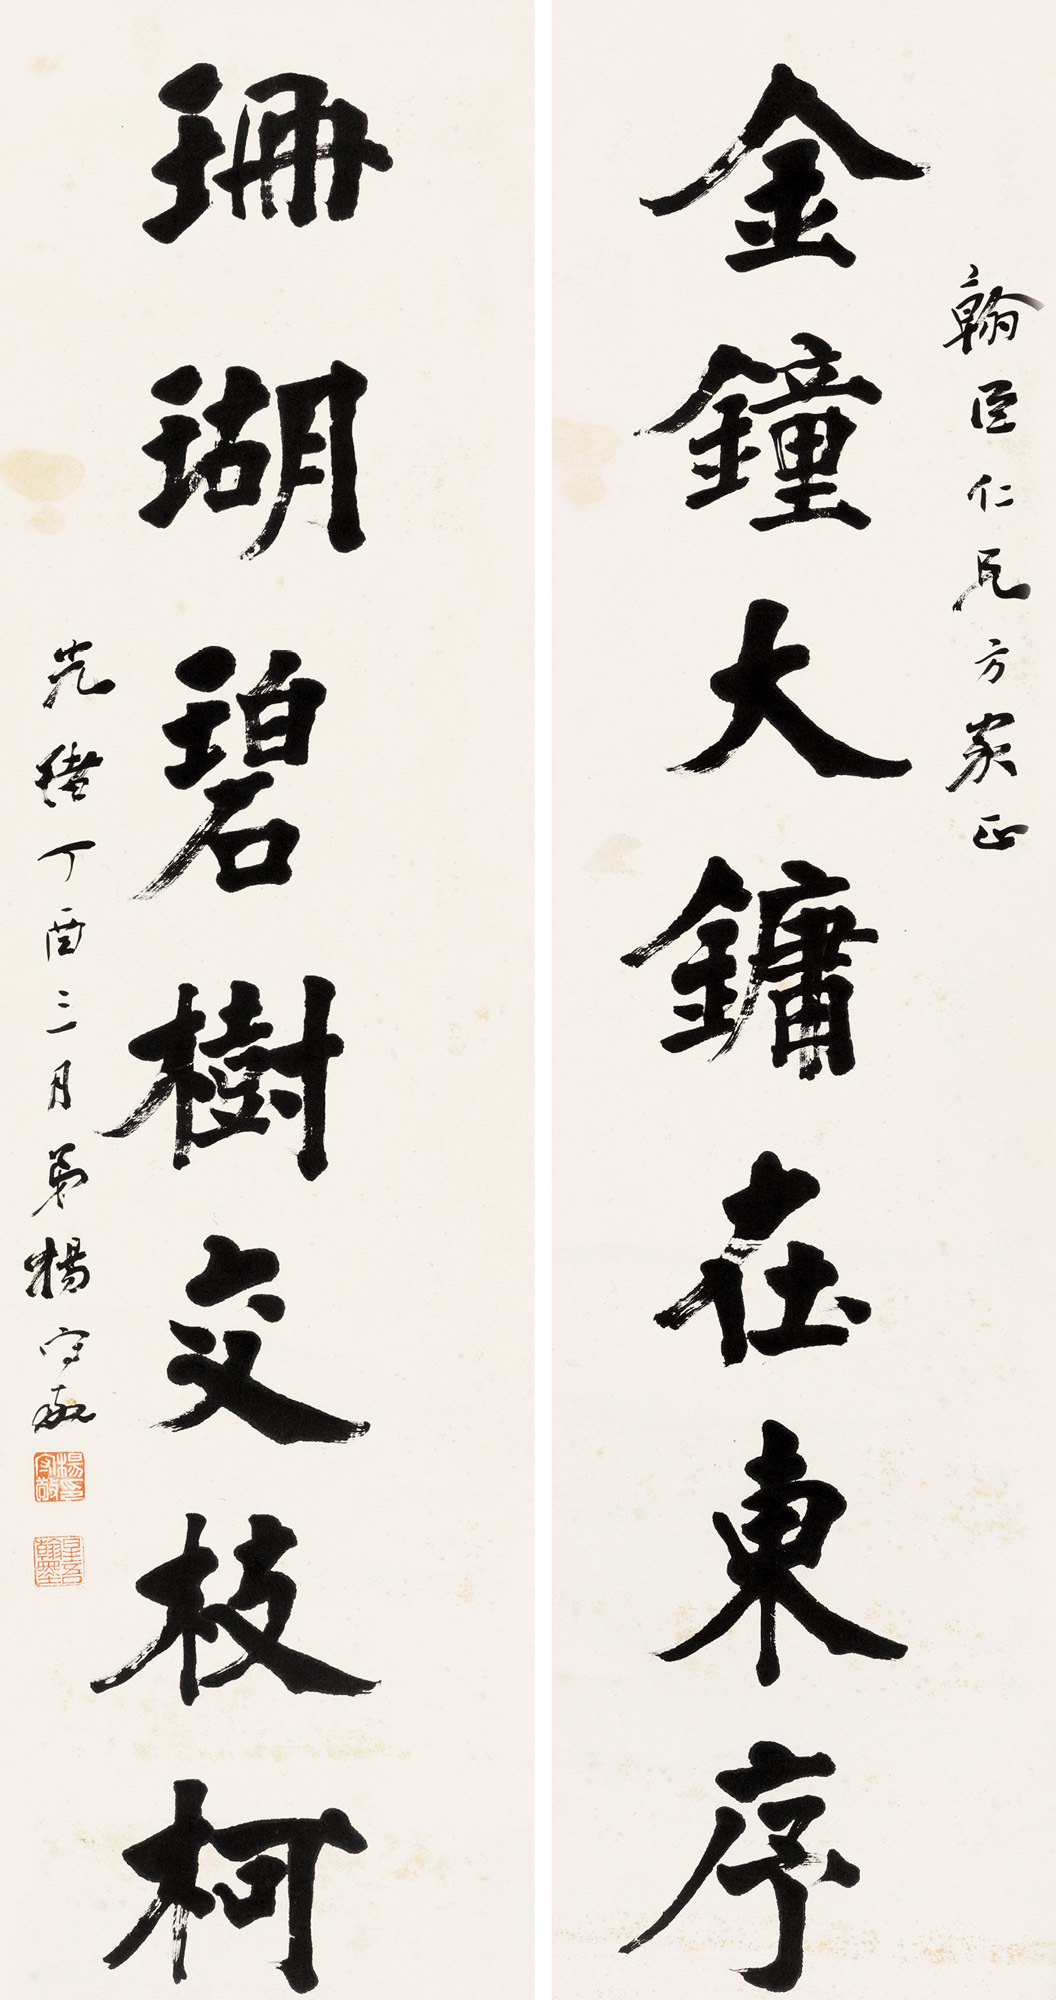 翰臣仁兄方家正
金鐘大鏞在東序
珊瑚碧樹交枝柯
光緒丁酉三月弟楊守敬
楊印守敬
星吾翰墨